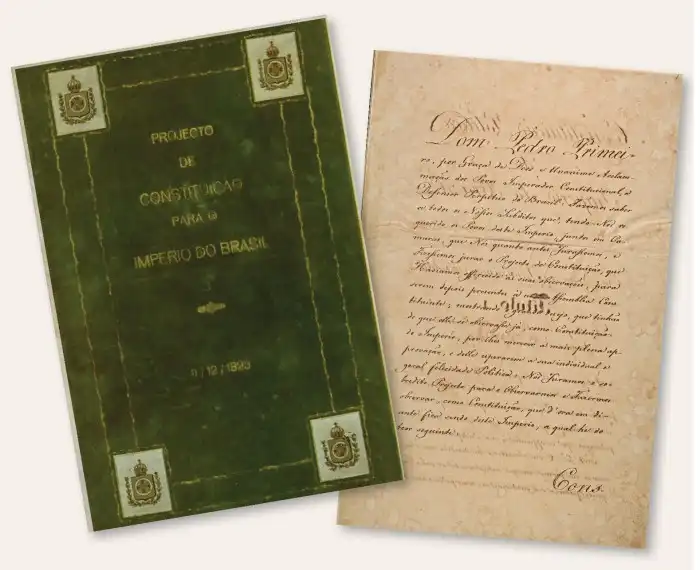 PROJECTO
DE
CONSTITUIÇÃO
PARA O
IMPERIO DO BRASIL
11/12/1823
Dom Pedro Primei-
ro, por Graça de Deos e Unanime Acclam-
mação dos Povos Imperador Constitucional, e
Defensor Perpetuo do Brasil: Fazemos saber
a todos os Nossos Subditos que, tendo Nos re
querido os Povos deste Imperio, juntos em Ca
maras, que Nos quanto antes Jurassemos, e
Fizessemos jurar o Projecto de Constituição, que
Haviamos offerecido ás suas observações, para
serem depois presentes á nova Assembléa Cons
tituinte; mostrando o grande desejo, que tinhão
de que elle se observasse já, como Constituição
do Imperio, por lhes merecer a mais plena ap
provação, e delle esperarem a sua individual, e
geral felicidade Politica: Nós Juramos o so
bredito Projecto para o Observarmos e Fazermos
observar, como Constituição, que d'ora em di
ante fica sendo deste Imperio, a qual he do
teor seguinte:
Cons